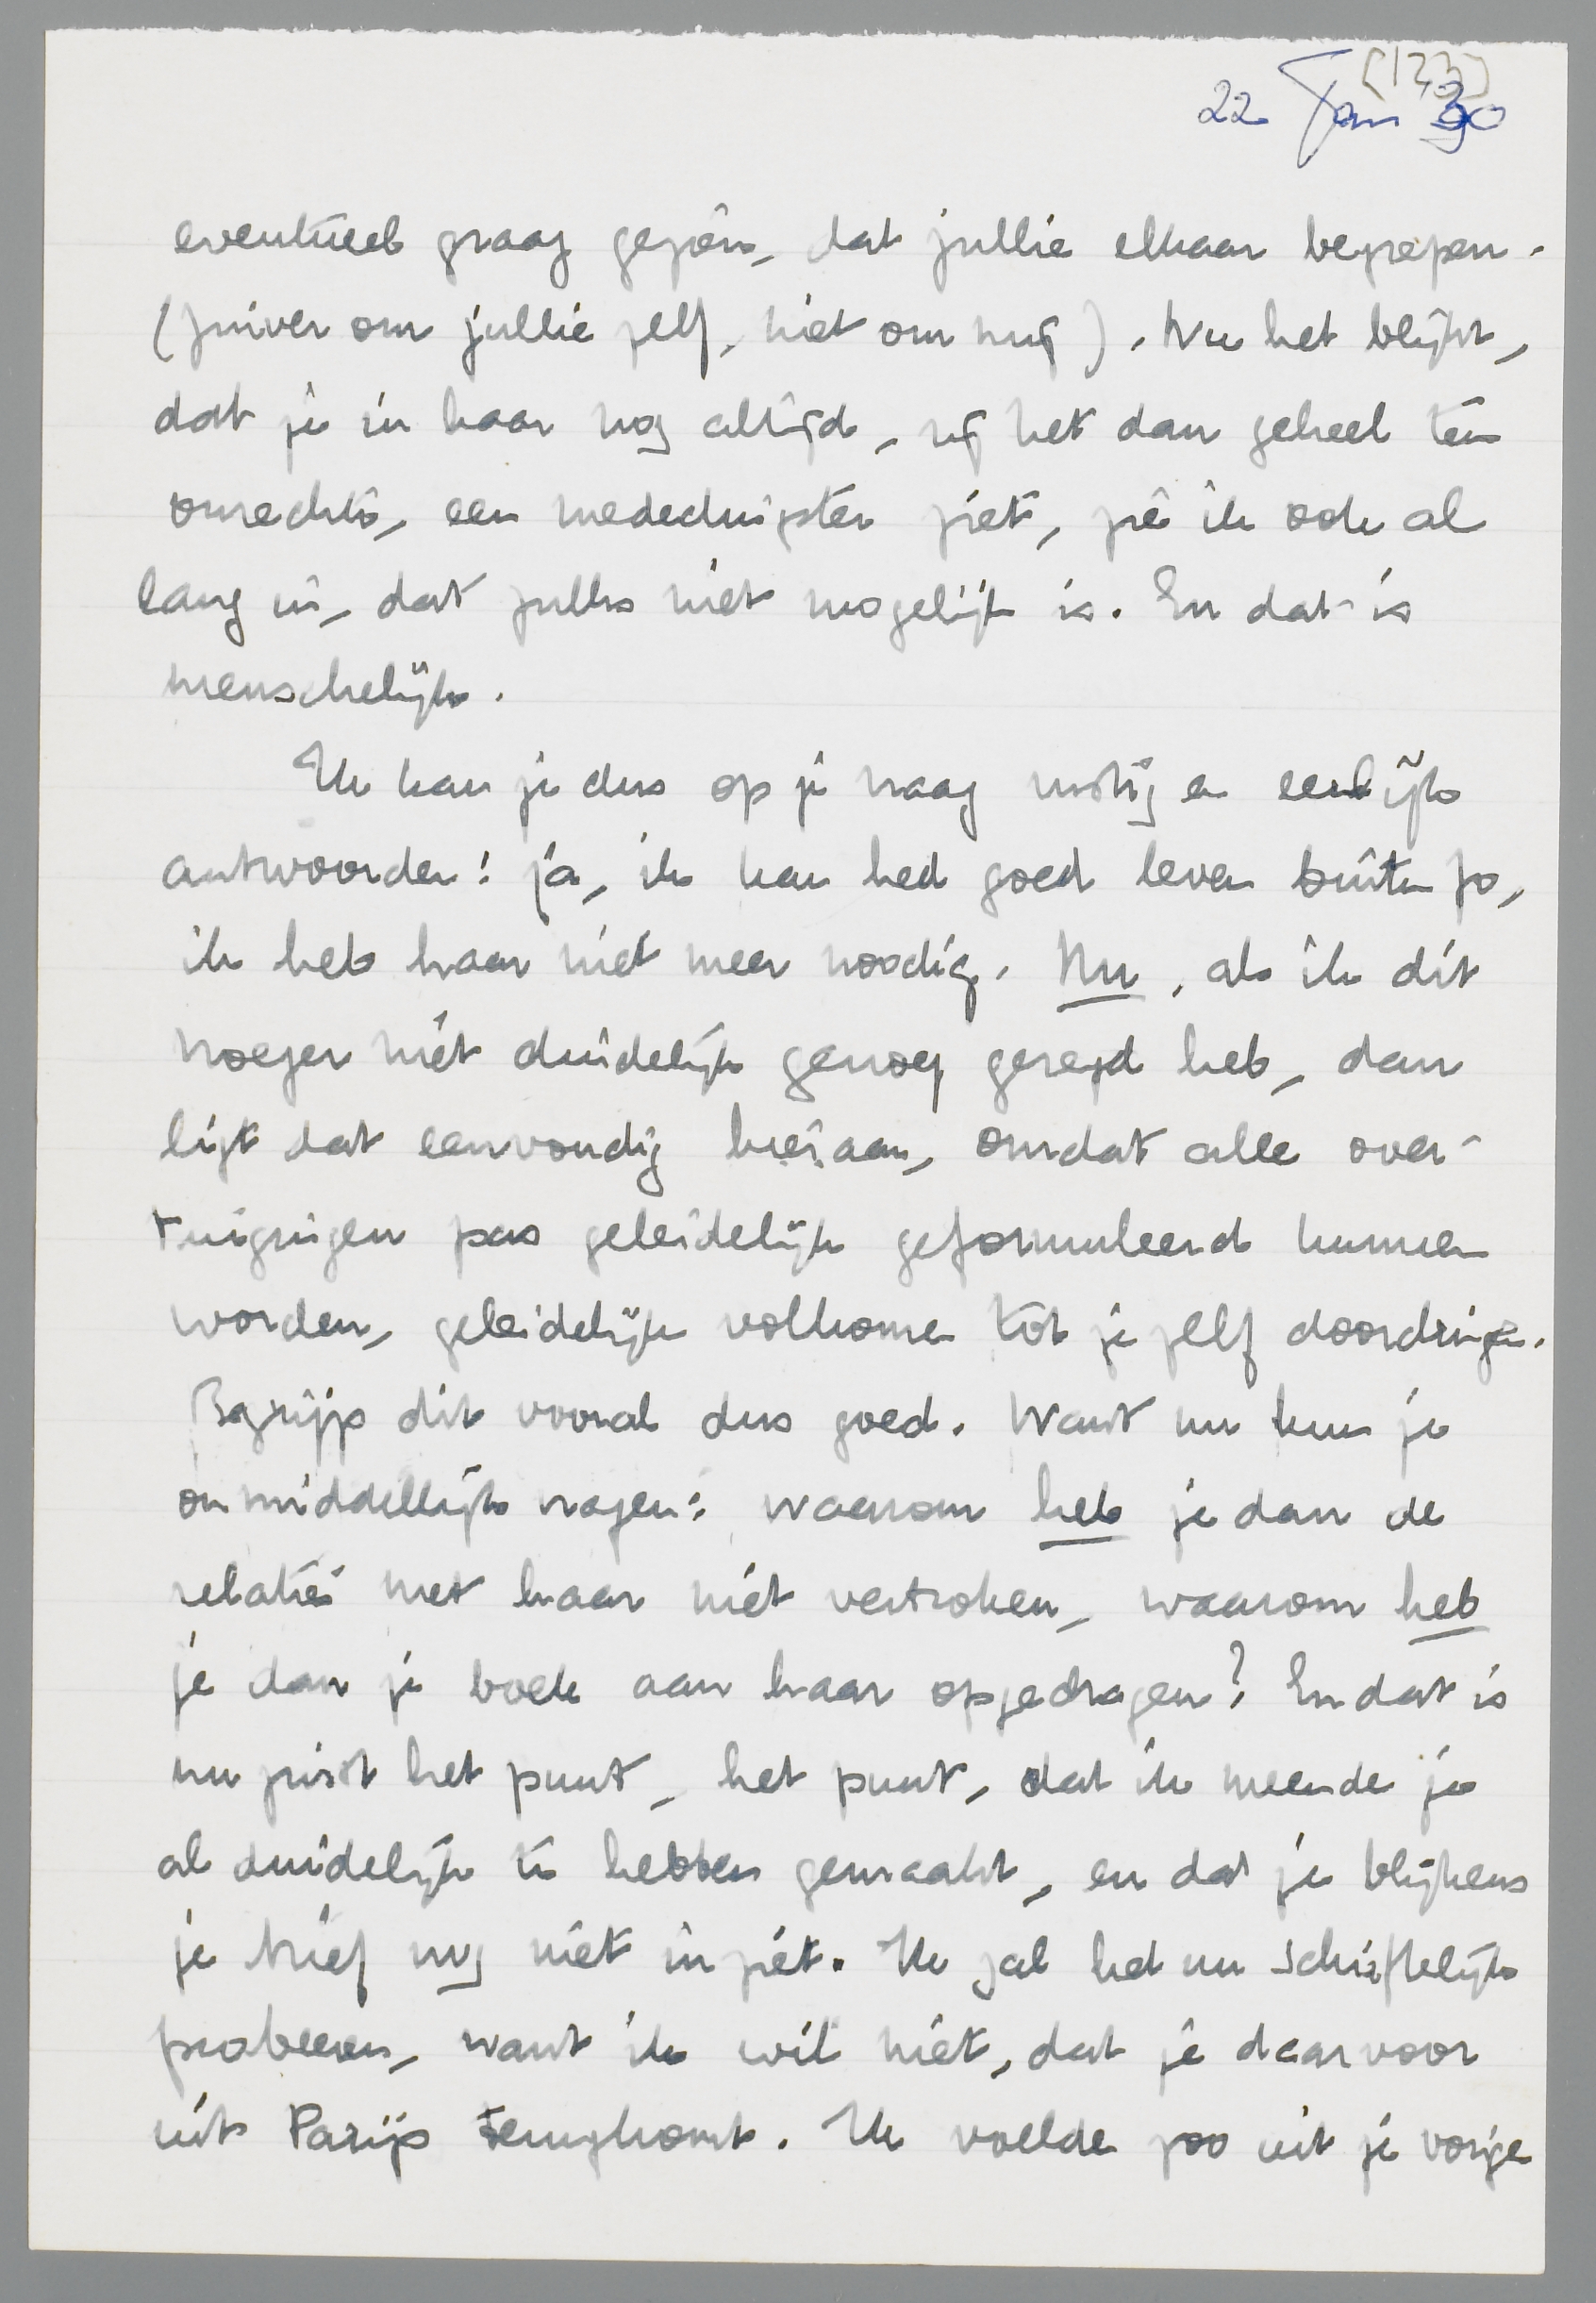 [123]
22 Jan 30
eventueel graag gezien, dat jullie elkaar begrepen.
(zuiver om jullie zelf, niet om mij). Nu het blijkt,
dat je in haar nog altijd, zij het dan geheel ten
onrechte, een mededingster ziet, zie ik ook al
lang in, dat zulks niet mogelijk is. En dat is
menschelijk.
Ik kan je dus op je vraag rustig en eerlijk
antwoorden: ja, ik kan heel goed leven buiten Jo,
ik heb haar niet meer noodig. Nu, als ik dit
vroeger niet duidelijk genoeg gezegd heb, dan
ligt dat eenvoudig hieraan, omdat alle over-
tuigingen pas geleidelijk geformuleerd kunnen
worden, geleidelijk volkomen tot je zelf doordringen.
Begrijp dit vooral dus goed. Want nu kun je
onmiddellijk vragen: waarom heb je dan de
relatie met haar niet verbroken, waarom heb
je dan je boek aan haar opgedragen? En dat is
nu juist het punt, het punt, dat ik meende je
al duidelijk te hebben gemaakt, en dat je blijkens
je brief nog niet inziet. Ik zal het nu schriftelijk
probeeren, want ik wil niet, dat je daarvoor
uit Parijs terugkomt. Ik voelde zoo uit je vorige